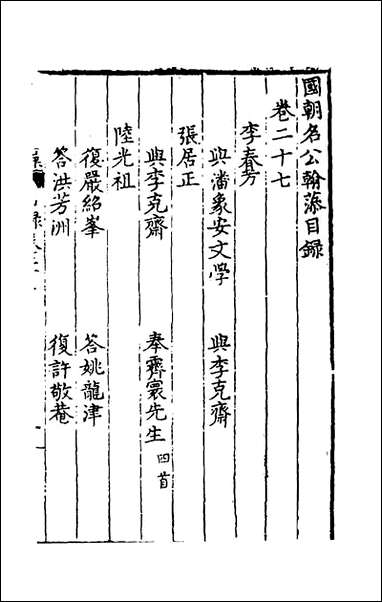 國朝名公翰藻目録
卷二十七
李春芳
與潘象安文學 與李克齋
張居正
與李克齋 奉霽寰先生 四首
陸光祖
復嚴紹峯 答姚龍津
答洪芳洲 復許敬菴